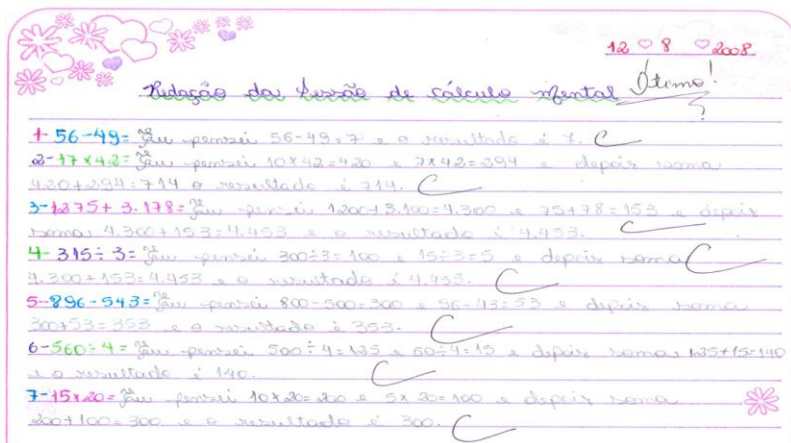 12 8 2008
Redação da Sessão de cálculo mental Ótimo!
1- 56-49= Eu pensei 56-49=7 e o resultado é 7. C
2- 17x42= Eu pensei 10x42=420 e 7x42=294 e depois soma
420+294=714 o resultado é 714. C
3- 1275+3.178= Eu pensei 1200+3.100=4.300 e 75+78=153 e depois
soma 4.300+153=4.453 e o resultado é 4.453. C
4- 315÷3= Eu pensei 300÷3=100 e 15÷3=5 e depois soma C
4.300+153=4.453 e o resultado é 4.453. C
5- 896-543= Eu pensei 800-500=300 e 96-43=53 e depois soma
300+53=353 e o resultado é 353. C
6- 560÷4= Eu pensei 500÷4=125 e 60÷4=15 e depois soma 125+15=140
e o resultado é 140. C
7- 15x20= Eu pensei 10x20=200 e 5x20=100 e depois soma
200+100=300 e o resultado é 300. C